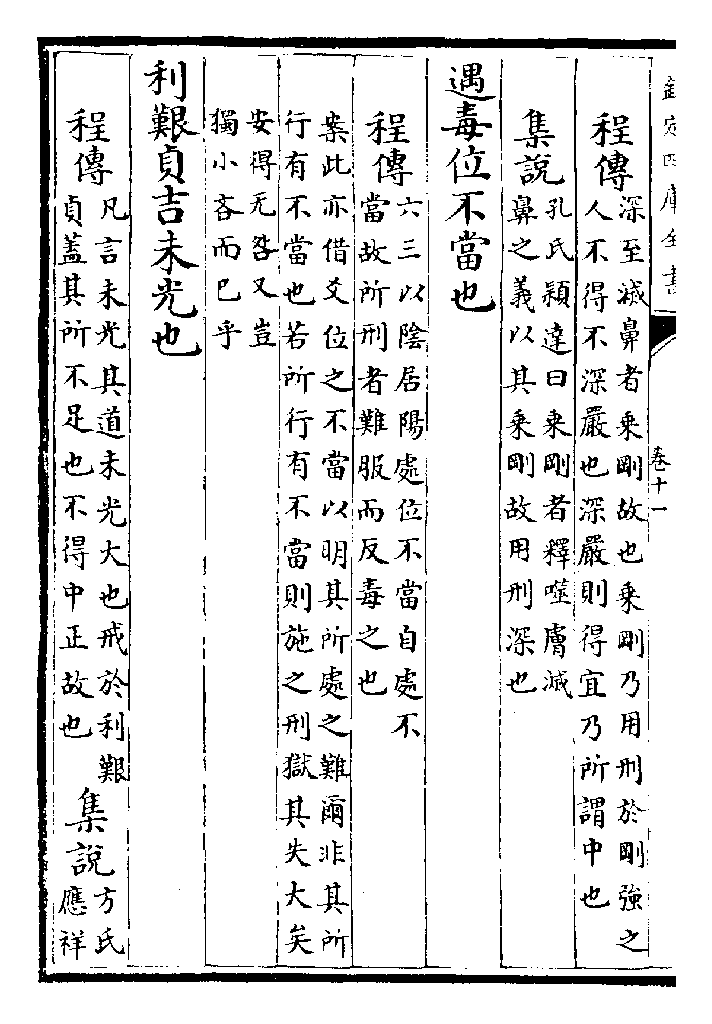 欽定四庫全書
卷十一
程傳
深至滅鼻者乗剛故也乗剛乃用刑於剛強之
人不得不深嚴也深嚴則得宜乃所謂中也
集說
孔氏穎達曰乗剛者釋噬膚滅
鼻之義以其乗剛故用刑深也
遇毒位不當也
程傳
六三以陰居陽處位不當自處不
當故所刑者難服而反毒之也
案此亦借爻位之不當以明其所處之難爾非其所
行有不當也若所行有不當則施之刑獄其失大矣
安得无咎又豈
獨小吝而已乎
利艱貞吉未光也
程傳
凡言未光其道未光大也戒於利艱
貞蓋其所不足也不得中正故也
集說
方氏
應祥